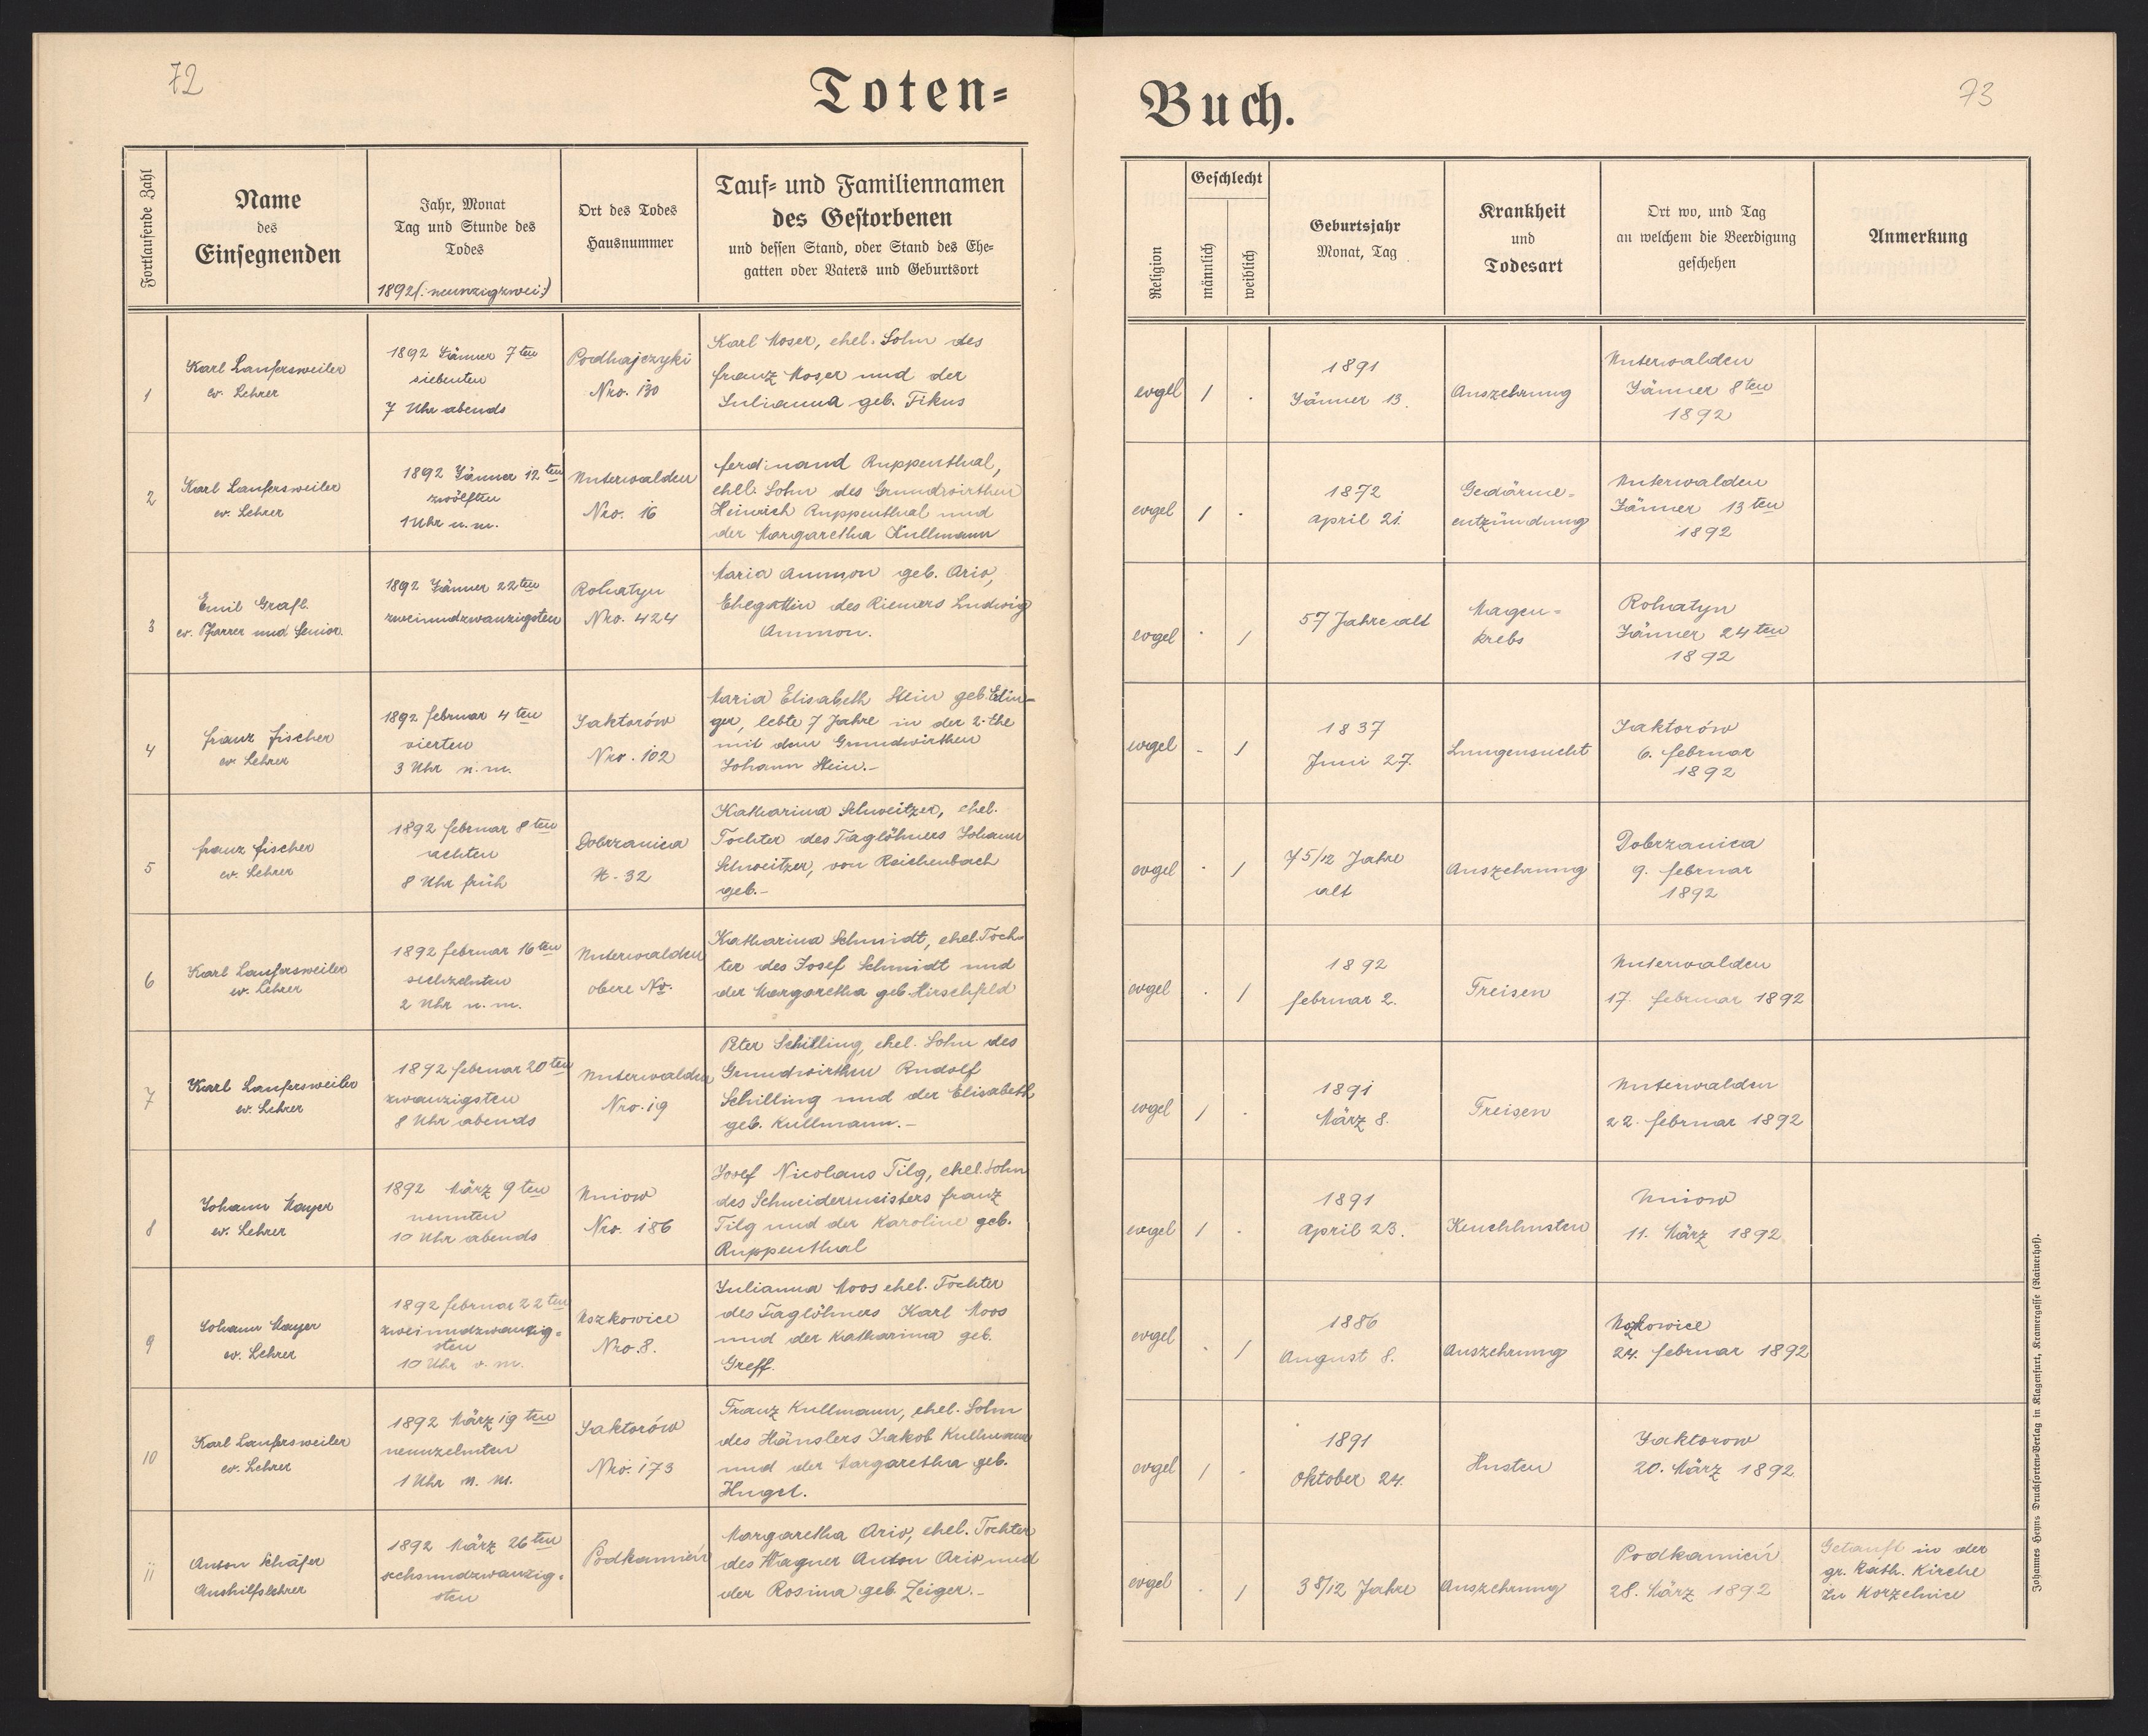 72
Toten-
Fortlaufende Zahl
Name
des
Einsegnenden
Jahr, Monat
Tag und Stunde des
Todes
1892 (: neunzigzwei :)
Ort des Todes
Hausnummer
Tauf- und Familiennamen
des Gestorbenen
und dessen Stand, oder Stand des Ehe-
gatten oder Vaters und Geburtsort
1
Karl Laufersweiler
ev. Lehrer
1892 Jänner 7ten
siebenten
7 Uhr abends
Podhajczyki
Nro. 130
Karl Moser, ehel. Sohn des
Franz Moser und der
Julianna geb. Fikus
2
Karl Laufersweiler
ev. Lehrer
1892 Jänner 12ten
zwölften
1 Uhr n. m.
Unterwalden
Nro. 16
Ferdinand Ruppenthal,
ehel. Sohn des Grundwirthen
Heinrich Ruppenthal und
der Margaretha Kullmann
3
Emil Grafl.
ev. Pfarrer und Senior.
1892 Jänner 22ten
zweiundzwanzigsten
Rohatyn
Nro. 424
Maria Ammon geb. Ario,
Ehegattin des Riemers Ludwig
Ammon.
4
Franz Fischer
ev. Lehrer
1892 Februar 4ten
vierten
3 Uhr n. m.
Jaktorów
Nro. 102
Maria Elisabeth Stein geb. Edin-
ger, lebte 7 Jahre in der 2. Ehe
mit dem Grundwirthen
Johann Stein.-
5
Franz Fischer
ev. Lehrer
1892 Februar 8ten
achten
8 Uhr früh
Dobrzanica
N. 32
Katharina Schweitzer, ehel.
Tochter des Taglöhners Johann
Schweitzer, von Reichenbach
geb.-
6
Karl Laufersweiler
ev. Lehrer
1892 Februar 16ten
sechzehnten
2 Uhr n. m.
Unterwalden
obere No.
Katharina Schmidt, ehel. Toch-
ter des Josef Schmidt und
der Margaretha geb. Hirschfeld
7
Karl Laufersweiler
ev. Lehrer
1892 Februar 20ten
zwanzigsten
8 Uhr abends
Unterwalden
Nro. 19
Peter Schilling, ehel. Sohn des
Grundwirthen Rudolf
Schilling und der Elisabeth
geb. Kullmann.-
8
Johann Mayer
ev. Lehrer
1892 März 9ten
neunten
10 Uhr abends
Uniow
Nro. 186
Josef Nicolaus Tilg, ehel. Sohn
des Schneidermeisters Franz
Tilg und der Karoline geb.
Ruppenthal
9
Johann Mayer
ev. Lehrer
1892 Februar 22ten
zweiundzwanzig-
sten
10 Uhr v. m.
Uszkowice
Nro. 8.
Julianna Moos ehel. Tochter
des Taglöhners Karl Moos
und der Katharina geb.
Greff.
10
Karl Laufersweiler
ev. Lehrer
1892 März 19ten
neunzehnten
1 Uhr n. m.
Jaktorów
Nro. 173
Franz Kullmann, ehel. Sohn
des Häuslers Jakob Kullmann
und der Margaretha geb.
Hugel.
11
Anton Schäfer
Aushilfslehrer
1892 März 26ten
sechsundzwanzig-
sten
Podkamień
Margaretha Ario, ehel. Tochter
des Wagner Anton Ario und
der Rosina geb. Zeiger.-
73
Buch.
Religion
Geschlecht
männlich
weiblich
Geburtsjahr
Monat, Tag
Krankheit
und
Todesart
Ort wo, und Tag
an welchem die Beerdigung
geschehen
Anmerkung
evgel
1
.
1891
Jänner 13.
Auszehrung
Unterwalden
Jänner 8ten
1892
evgel
1
.
1872
April 21.
Gedärme-
entzündung
Unterwalden
Jänner 13ten
1892
evgel
.
1
57 Jahre alt
Magen-
krebs
Rohatyn
Jänner 24ten
1892
evgel
.
1
1837
Juni 27.
Lungensucht
Jaktorów
6. Februar
1892
evgel
.
1
7 5/12 Jahre
alt
Auszehrung
Dobrzanica
9. Februar
1892
evgel
.
1
1892
Februar 2.
Freisen
Unterwalden
17. Februar 1892
evgel
1
.
1891
März 8.
Freisen
Unterwalden
22. Februar 1892
evgel
1
.
1891
April 23.
Keuchhusten
Uniow
11. März 1892
evgel
.
1
1886
August 8.
Auszehrung
Uszkowice
24. Februar 1892
evgel
1
.
1891
Oktober 24.
Husten
Jaktorow
20. März 1892.
evgel
.
1
3 8/12 Jahre
Auszehrung
Podkamień
28. März 1892
Getauft in der
gr. kath. Kirche
zu Korzelnice
Johannes Heyns Drucksorten-Verlag in Klagenfurt, Kramergasse (Rainerhof).